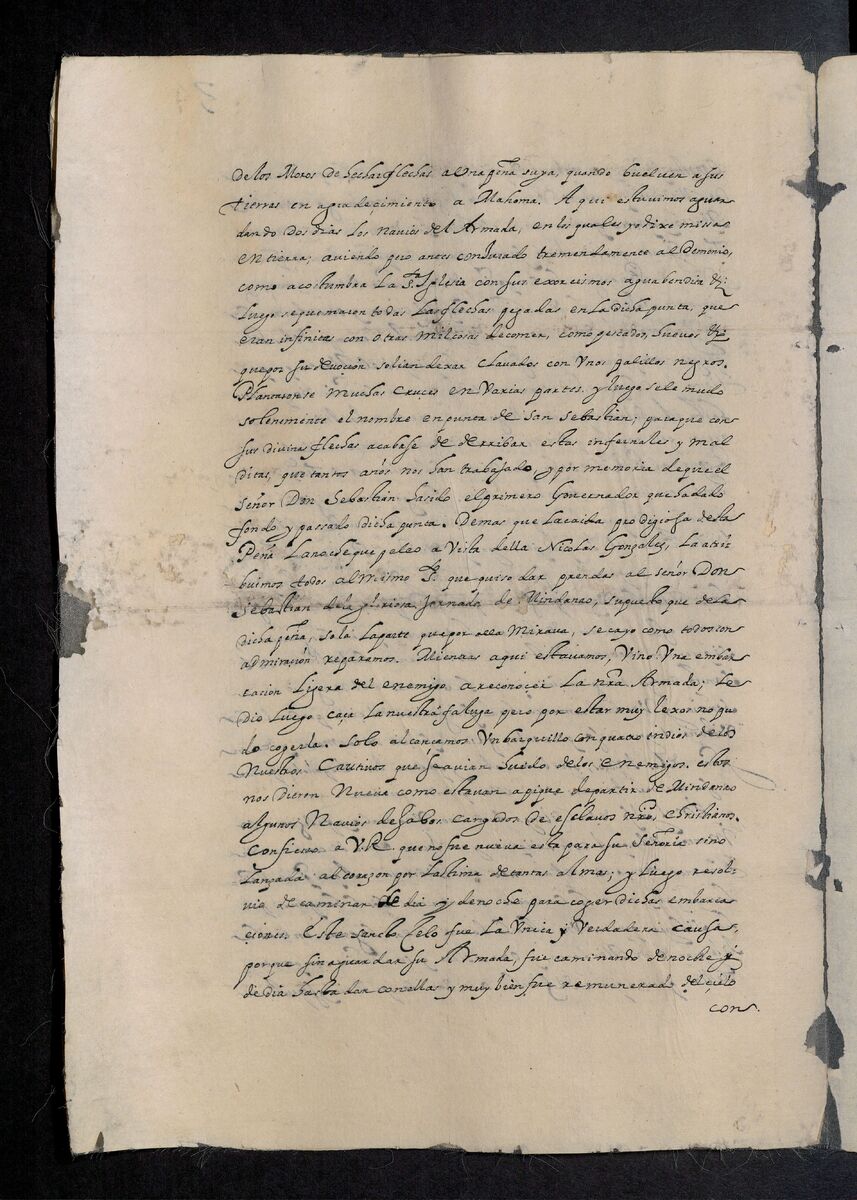 de los Moros de hechar flechas a una peña suya, quando buelven a sus
tierras en agradeçimiento a Mahoma. Aqui estuvimos aguar
dando Dos dias los navios del Armada, en los quales yo dixe missa
en tierra; aviendo pero antes conjurado tremendamente al Demonio,
como acostumbra la Sta Iglesia con sus exorcismos agua bendita &c.
luego se quemaron todas las flechas pegadas en la dicha punta, que
eran infinitas con otras mil cosas de comer, como pescados, huevos &c.
que por su devoçion solian dexar clavados con unos palillos negros.
Plantaronse muchas cruces en varias partes. y luego se le mudo
solenemente el nombre en punta de San Sebastian; para que con
sus divinas flechas acabase de derribar estas infernales y mal
ditas, que tantos años nos han trabajado, y por memoria de que el
señor Don Sebastian ha sido el primero Governador que ha dado
fondo, y passado dicha punta. Demas que la caida prodigiosa desta
Peña la noche que peleo a vista della Nicolas Gonzales, la atri
buimos todos al mismo So. que quiso dar prendas al señor Don
Sebastian de la gloriosa Jornada de Mindanao, supuesto que de la
dicha peña, solo la parte que por alla mirava, se cayo como todos con
admiraçion reparamos. Mientras aqui estavamos, vino una embar
cacion ligera del enemigo a reconocer la nra Armada; le
dio luego caça la nuestra faluga pero por estar muy lexos no pu
do cogerla. Solo alcançamos un barquillo con quatro indios de los
nuestros cautivos que se avian huido de los enemigos. estos
nos dieron nueva como estavan a pique de partir de Mindanao
algunos navios de Jabos cargados de esclavos nros, christianos.
Confiesso a V.R. que no fue nueva esta para su Señoria sino
lanzada al corazon por lastima de tantas almas; y luego resol
vio de caminar de dia y de noche para coger dichas embarca
çiones. Este sancto zelo fue la unica y verdadera causa,
porque sin aguardar su Armada, fue caminando de noche y
de dia hasta dar con ellas y muy bien fue remunerado del çielo
con